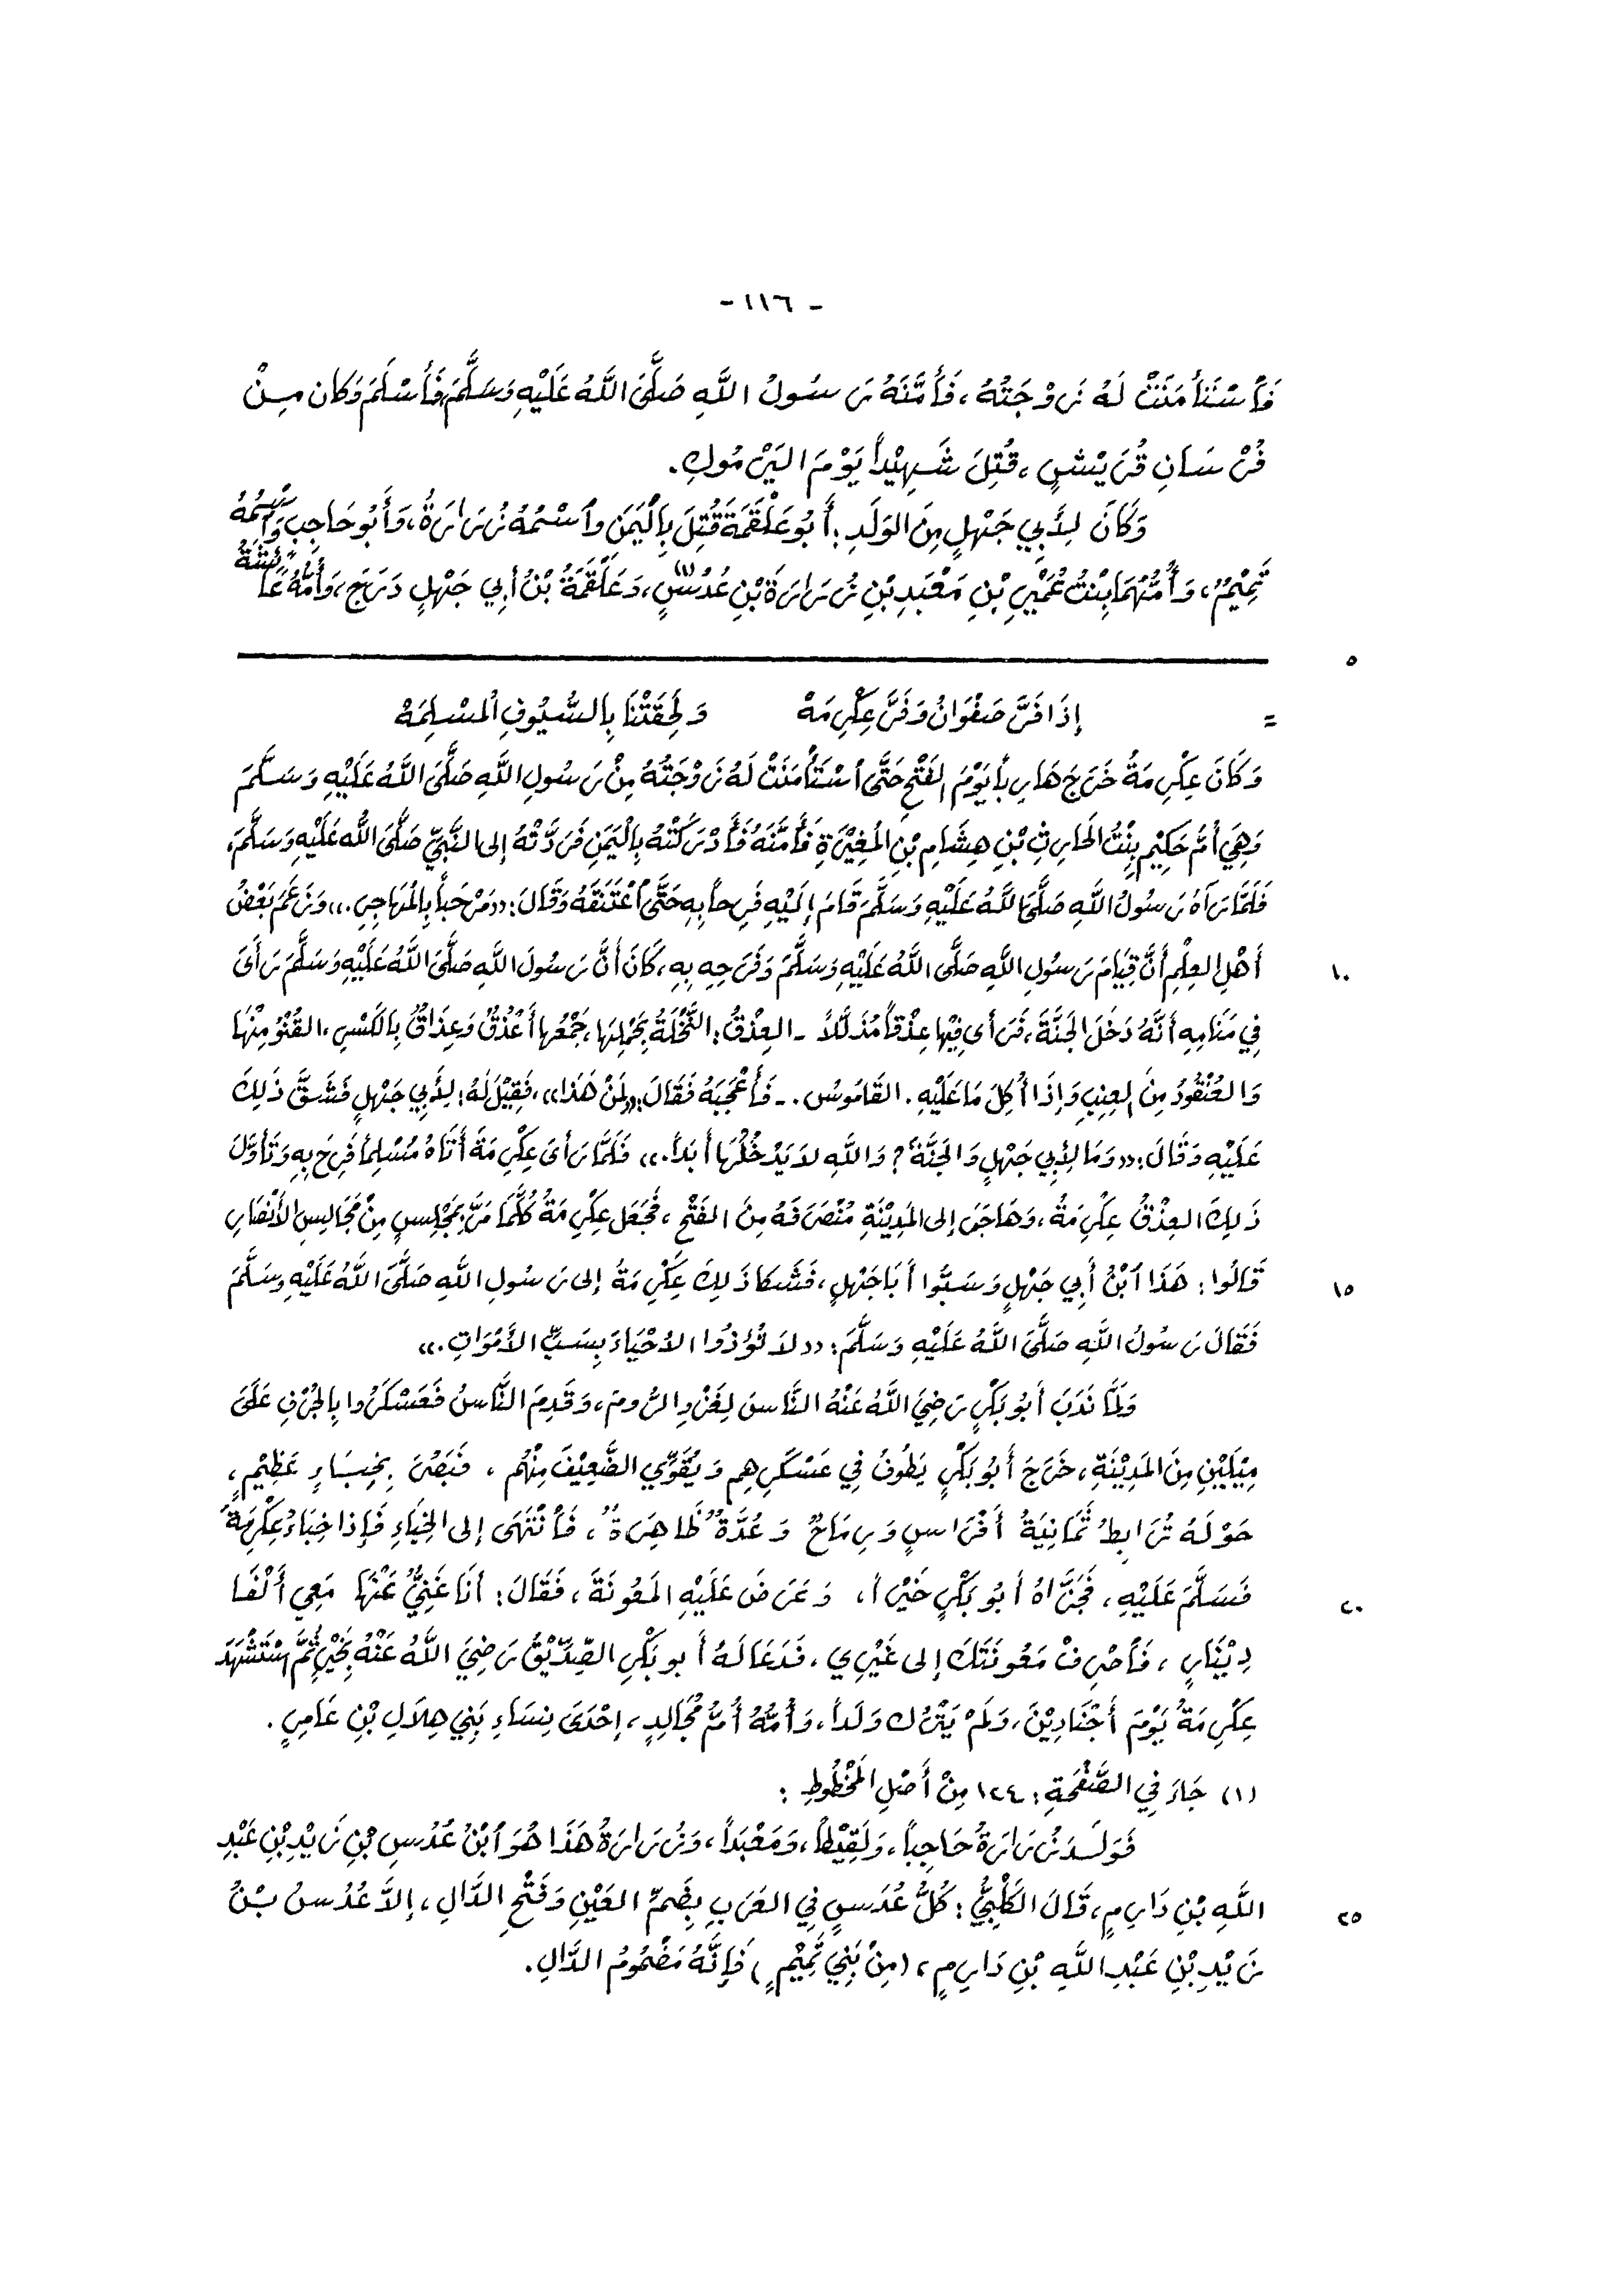 - ١١٦ -
فَٱسْتَأْمَنَتْ لَهُ زَوْجَتُهُ، فَأَمَّنَهُ رَسُولُ اللَّهِ صَلَّى اللَّهُ عَلَيْهِ وَسَلَّمَ، فَأَسْلَمَ وَكَانَ مِنْ
فُرْسَانِ قُرَيْشٍ، قُتِلَ شَهِيْداً يَوْمَ اليَرْمُوكِ.
وَكَانَ لِأَبِي جَهْلٍ مِنَ الوَلَدِ: أَبُو عَلْقَمَةَ قُتِلَ بِٱلْيَمَنِ وٱسْمُهُ زُرَارَةُ، وَأَبُو حَاجِبٍ وَٱسْمُهُ
تَمِيْمٌ، وَأُمُّهُمَا بِنْتُ عُمَيْرِ بْنِ مَعْبَدِ بْنِ زُرَارَةَ بْنِ عُدُسٍ(١)، وَعَلْقَمَةُ بْنُ أَبِي جَهْلٍ دَرَجَ، وَأُمُّهُ عَائِشَةُ
٥
= إِذَا فَرَّ صَفْوَانُ وَفَرَّ عِكْرِمَهْ وَلَحِقَتْنَا بِالسُّيُوفِ المُسْلِمَهْ
وَكَانَ عِكْرِمَةُ خَرَجَ هَارِباً يَوْمَ الفَتْحِ حَتَّى ٱسْتَأْمَنَتْ لَهُ زَوْجَتُهُ مِنْ رَسُولِ اللَّهِ صَلَّى اللَّهُ عَلَيْهِ وَسَلَّمَ
وَهِيَ أُمُّ حَكِيْمٍ بِنْتُ الحَارِثِ بْنِ هِشَامِ بْنِ المُغِيْرَةِ فَأَمَّنَهُ فَأَدْرَكَتْهُ بِالْيَمَنِ فَرَدَّتْهُ إلى النَّبِيِّ صَلَّى اللَّه عَلَيْهِ وَسَلَّمَ،
فَلَمَّا رَآهُ رَسُولُ اللَّهِ صَلَّى اللَّهُ عَلَيْهِ وَسَلَّمَ قَامَ إِلَيْهِ فَرِحاً بِهِ حَتَّى ٱعْتَنَقَهُ وَقَالَ: «مَرْحَباً بِالْمُهَاجِرِ.» وَزَعَمَ بَعْضُ
أَهْلِ العِلْمِ أَنَّ قِيَامَ رَسُولِ اللَّهِ صَلَّى اللَّهُ عَلَيْهِ وَسَلَّمَ وَفَرَحِهِ بِهِ، كَانَ أَنَّ رَسُولَ اللَّهِ صَلَّى اللَّهُ عَلَيْهِ وَسَلَّمَ رَأَى ١٠
فِي مَنَامِهِ أَنَّهُ دَخَلَ الجَنَّةَ، فَرَأَى فِيْها عِذْقاً مُذَلَّلاً - العِذْقُ: النَّخْلَةُ بِحَمْلِهَا، جَمْعُها أَعْذُقٌ وَعِذَاقٌ بِالكَسْرِ، القُنْوُ مِنْهَا
وَالعُنْقُودُ مِنَ العِنَبِ وَإِذَا أُكِلَ مَا عَلَيْهِ. القَامُوسُ. - فَأَعْجَبَهُ فَقَالَ: «لِمَنْ هَذَا»، فَقِيْلَ لَهُ: لِأَبِي جَهْلٍ فَشَقَّ ذَلِكَ
عَلَيْهِ وَقَالَ: «وَمَا لِأَبِي جَهْلٍ وَالجَنَّةَ؟ وَاللَّهِ لَا يَدْخُلُهَا أَبَداً.» فَلَمَّا رَأَى عِكْرِمَةَ أَتَاهُ مُسْلِماً فَرِحَ بِهِ وَتَأَوَّلَ
ذَلِكَ العِذْقُ عِكْرِمَةُ، وَهَاجَرَ إلى المَدِيْنَةِ مُنْصَرَفَهُ مِنَ الفَتْحِ، فَجَعَلَ عِكْرِمَةُ كُلَّمَا مَرَّ بِمَجْلِسٍ مِنْ مَجَالِسِ الأَنْصَارِ
قَالُوا: هَذَا ٱبْنُ أَبِي جَهْلٍ وَسَبُّوا أَبَا جَهْلٍ، فَشَكَا ذَلِكَ عِكْرِمَةُ إلى رَسُولِ اللَّهِ صَلَّى اللَّهُ عَلَيْهِ وسَلَّمَ ١٥
فَقَالَ رَسُولُ اللَّهِ صَلَّى اللَّهُ عَلَيْهِ وَسَلَّمَ: «لا تُؤْذُوا الأَحْيَاءَ بِسَبِّ الأَمْوَاتِ.»
وَلَمَّا نَدَبَ أَبُو بَكْرٍ رَضِيَ اللَّهُ عَنْهُ النَّاسَ لِغَزْوِ الرُّومِ، وَقَدِمَ النَّاسُ فَعَسْكَرُوا بِالجُرْفِ عَلَى
مِيْلَيْنِ مِنَ المَدِيْنَةِ، خَرَجَ أَبُو بَكْرٍ يَطُوفُ فِي عَسْكَرِهِم وَيُقَوِّي الضَّعِيْفَ مِنْهُم، فَبَصُرَ بِخِبَاءٍ عَظِيْمٍ،
حَوْلَهُ تُرَابِطُ ثَمَانِيَةُ أَفْرَاسٍ وَرِمَاحٌ وَعُدَّةٌ ظَاهِرَةٌ، فَٱنْتَهَى إلى الخِبَاءِ فَإِذا خِبَاءُ عِكْرِمَةَ
فَسَلَّمَ عَلَيْهِ، فَجَزَّاهُ أَبُو بَكْرٍ خَيْراً، وَعَرَضَ عَلَيْهِ المَعُونَةَ، فَقَالَ: أَنَا غَنِيٌّ عَنْهَا مَعِي أَلْفَا ٢٠
دِيْنَارٍ، فَٱصْرِفْ مَعُونَتَكَ إلى غَيْرِي، فَدَعَا لَهُ أَبو بَكْرٍ الصِّدِّيْقُ رَضِيَ اللَّهُ عَنْهُ بِخَيْرٍ ثُمَّ ٱسْتُشْهِدَ
عِكْرِمَةُ يَوْمَ أَجْنَادِيْنَ، وَلَمْ يَتْرُك وَلَداً، وَأُمُّهُ أُمُّ مُجَالِدٍ، إِحْدَى نِسَاءِ بَنِي هِلَالِ بْنِ عَامِرٍ.
(١) جَاءَ فِي الصَّفْحَةِ: ١٢٤ مِنْ أَصْلِ المَخْطُوطِ:
فَوَلَدَ زُرَارَةُ حَاجِباً، وَلَقِيْطاً، وَمَعْبَداً، وَزُرَارَةُ هَذَا هُوَ ٱبْنُ عُدُسِ بْنِ زَيْدِ بْنِ عَبْدِ
اللَّهِ بْنِ دَارِمٍ، قَالَ الكَلْبِيُّ: كُلُّ عُدَسٍ فِي العَرَبِ بِضَمِّ العَيْنِ وَفَتْحِ الدَّالِ، إلاَّ عُدُسُ بْنُ ٢٥
زَيْدِ بْنِ عَبْدِ اللَّهِ بْنِ دَارِمٍ، (مِنْ بَنِي تَمِيْمٍ) فَإِنَّهُ مَضْمُومُ الدَّالِ.